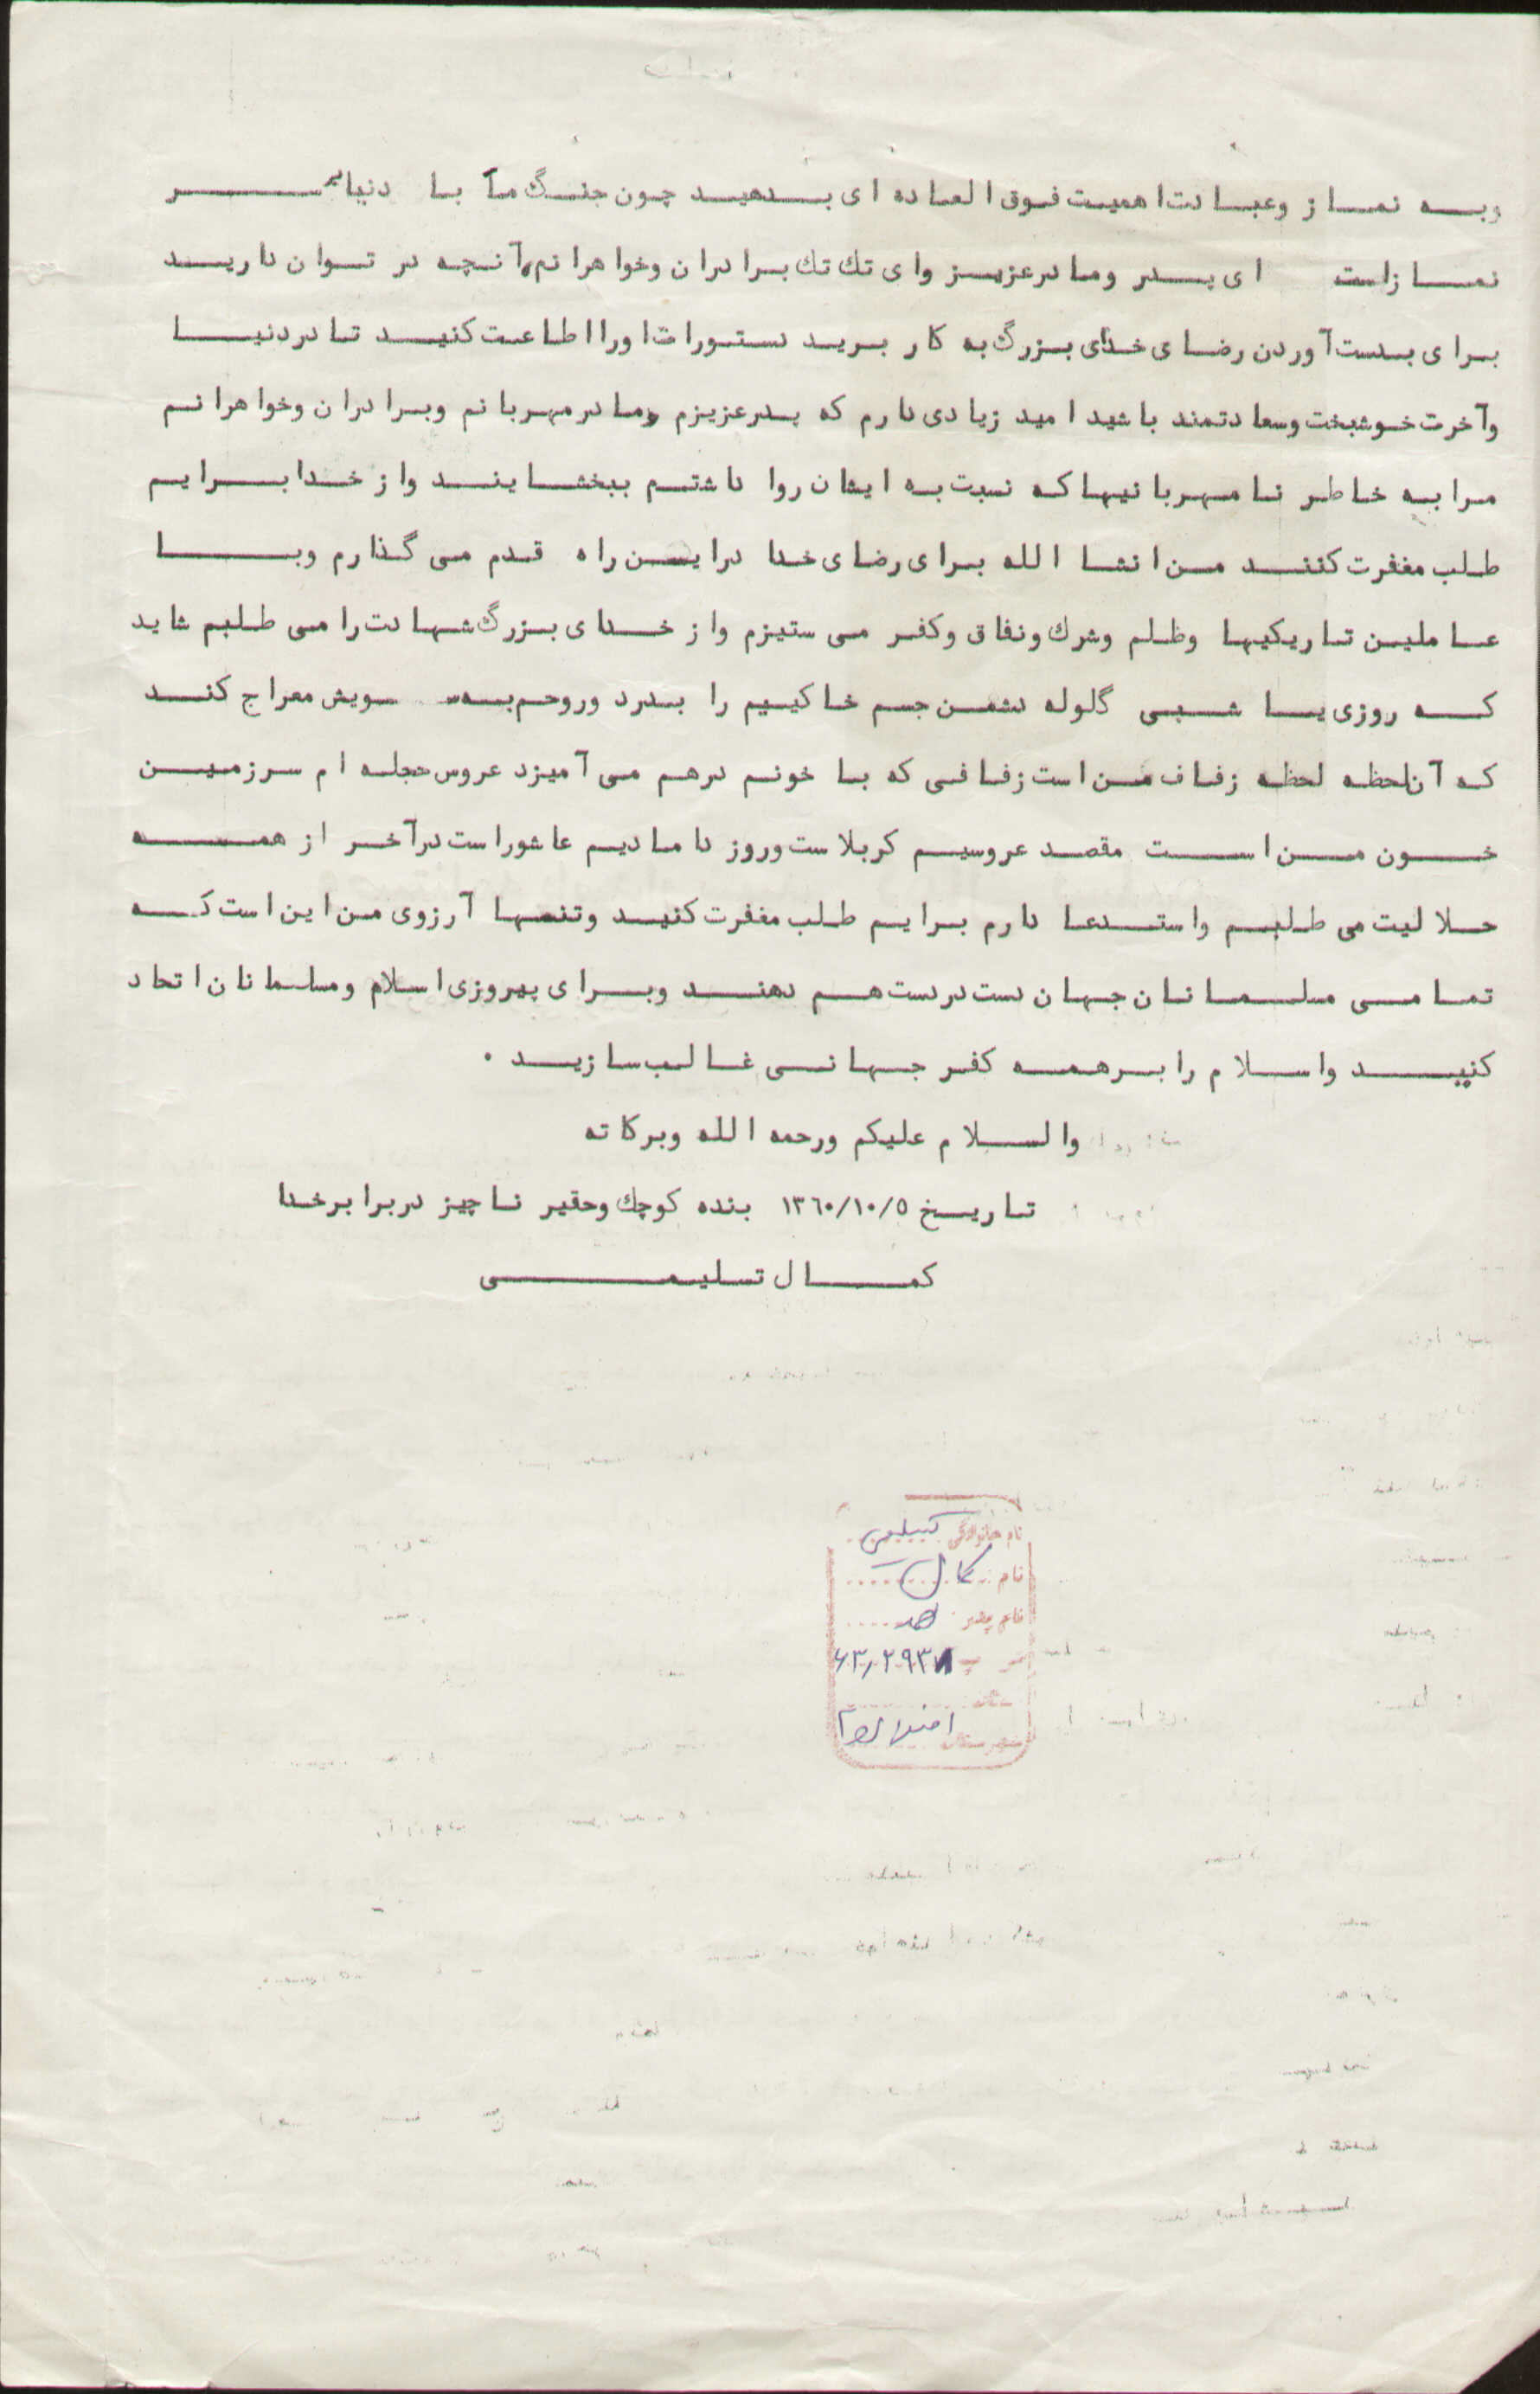 وبه نماز وعبادت اهمیت فوق العاده ای بدهید چون جنگ ما با دنیا بر سر
نماز است ای پدر ومادر عزیز وای تك تك برادران وخواهرانم، آنچه در توان دارید
برای بدست آوردن رضای خدای بزرگ به کار برید دستورات اورا اطاعت کنید تا در دنیا
وآخرت خوشبخت وسعادتمند باشید امید زیادی دارم که پدر عزیزم ومادر مهربانم وبرادران وخواهرانم
مرا به خاطر نا مهربانیها که نسبت به ایشان روا داشتم ببخشایند واز خدا برایم
طلب مغفرت کنند من انشا الله برای رضای خدا در این راه قدم می گذارم وبا
عاملین تاریکیها وظلم وشرك ونفاق وکفر می ستیزم واز خدای بزرگ شهادت را می طلبم شاید
که روزی یا شبی گلوله دشمن جسم خاکییم را بدرد وروحم به سویش معراج کند
که آن لحظه لحظه زفاف من است زفافی که با خونم درهم می آمیزد عروس حجله ام سرزمین
خون من است مقصد عروسیم کربلاست وروز دامادیم عاشوراست درآخر از همه
حلالیت می طلبم واستدعا دارم برایم طلب مغفرت کنید وتنها آرزوی من این است که
تمامی مسلمانان جهان دست در دست هم دهند وبرای پیروزی اسلام ومسلمانان اتحاد
کنید واسلام را برهمه کفر جهانی غالب سازید .
والسلام علیکم ورحمه الله وبرکاته
تاریخ ١٣٦٠/١٠/٥ بنده کوچك وحقیر ناچیز دربرابر خدا
کمال تسلیمی
نام خانوادگی
نام کمال
نام پدر
شهرستان